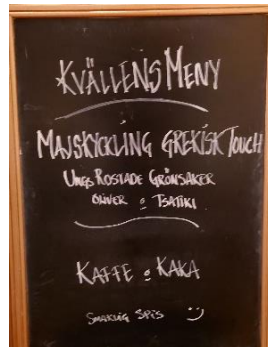 KVÄLLENS MENY
MAJSKYCKLING GREKISK TOUCH
UNGS ROSTADE GRÖNSAKER
OLIVER o TSATIKI
KAFFE o KAKA
SMAKLIG SPIS :)